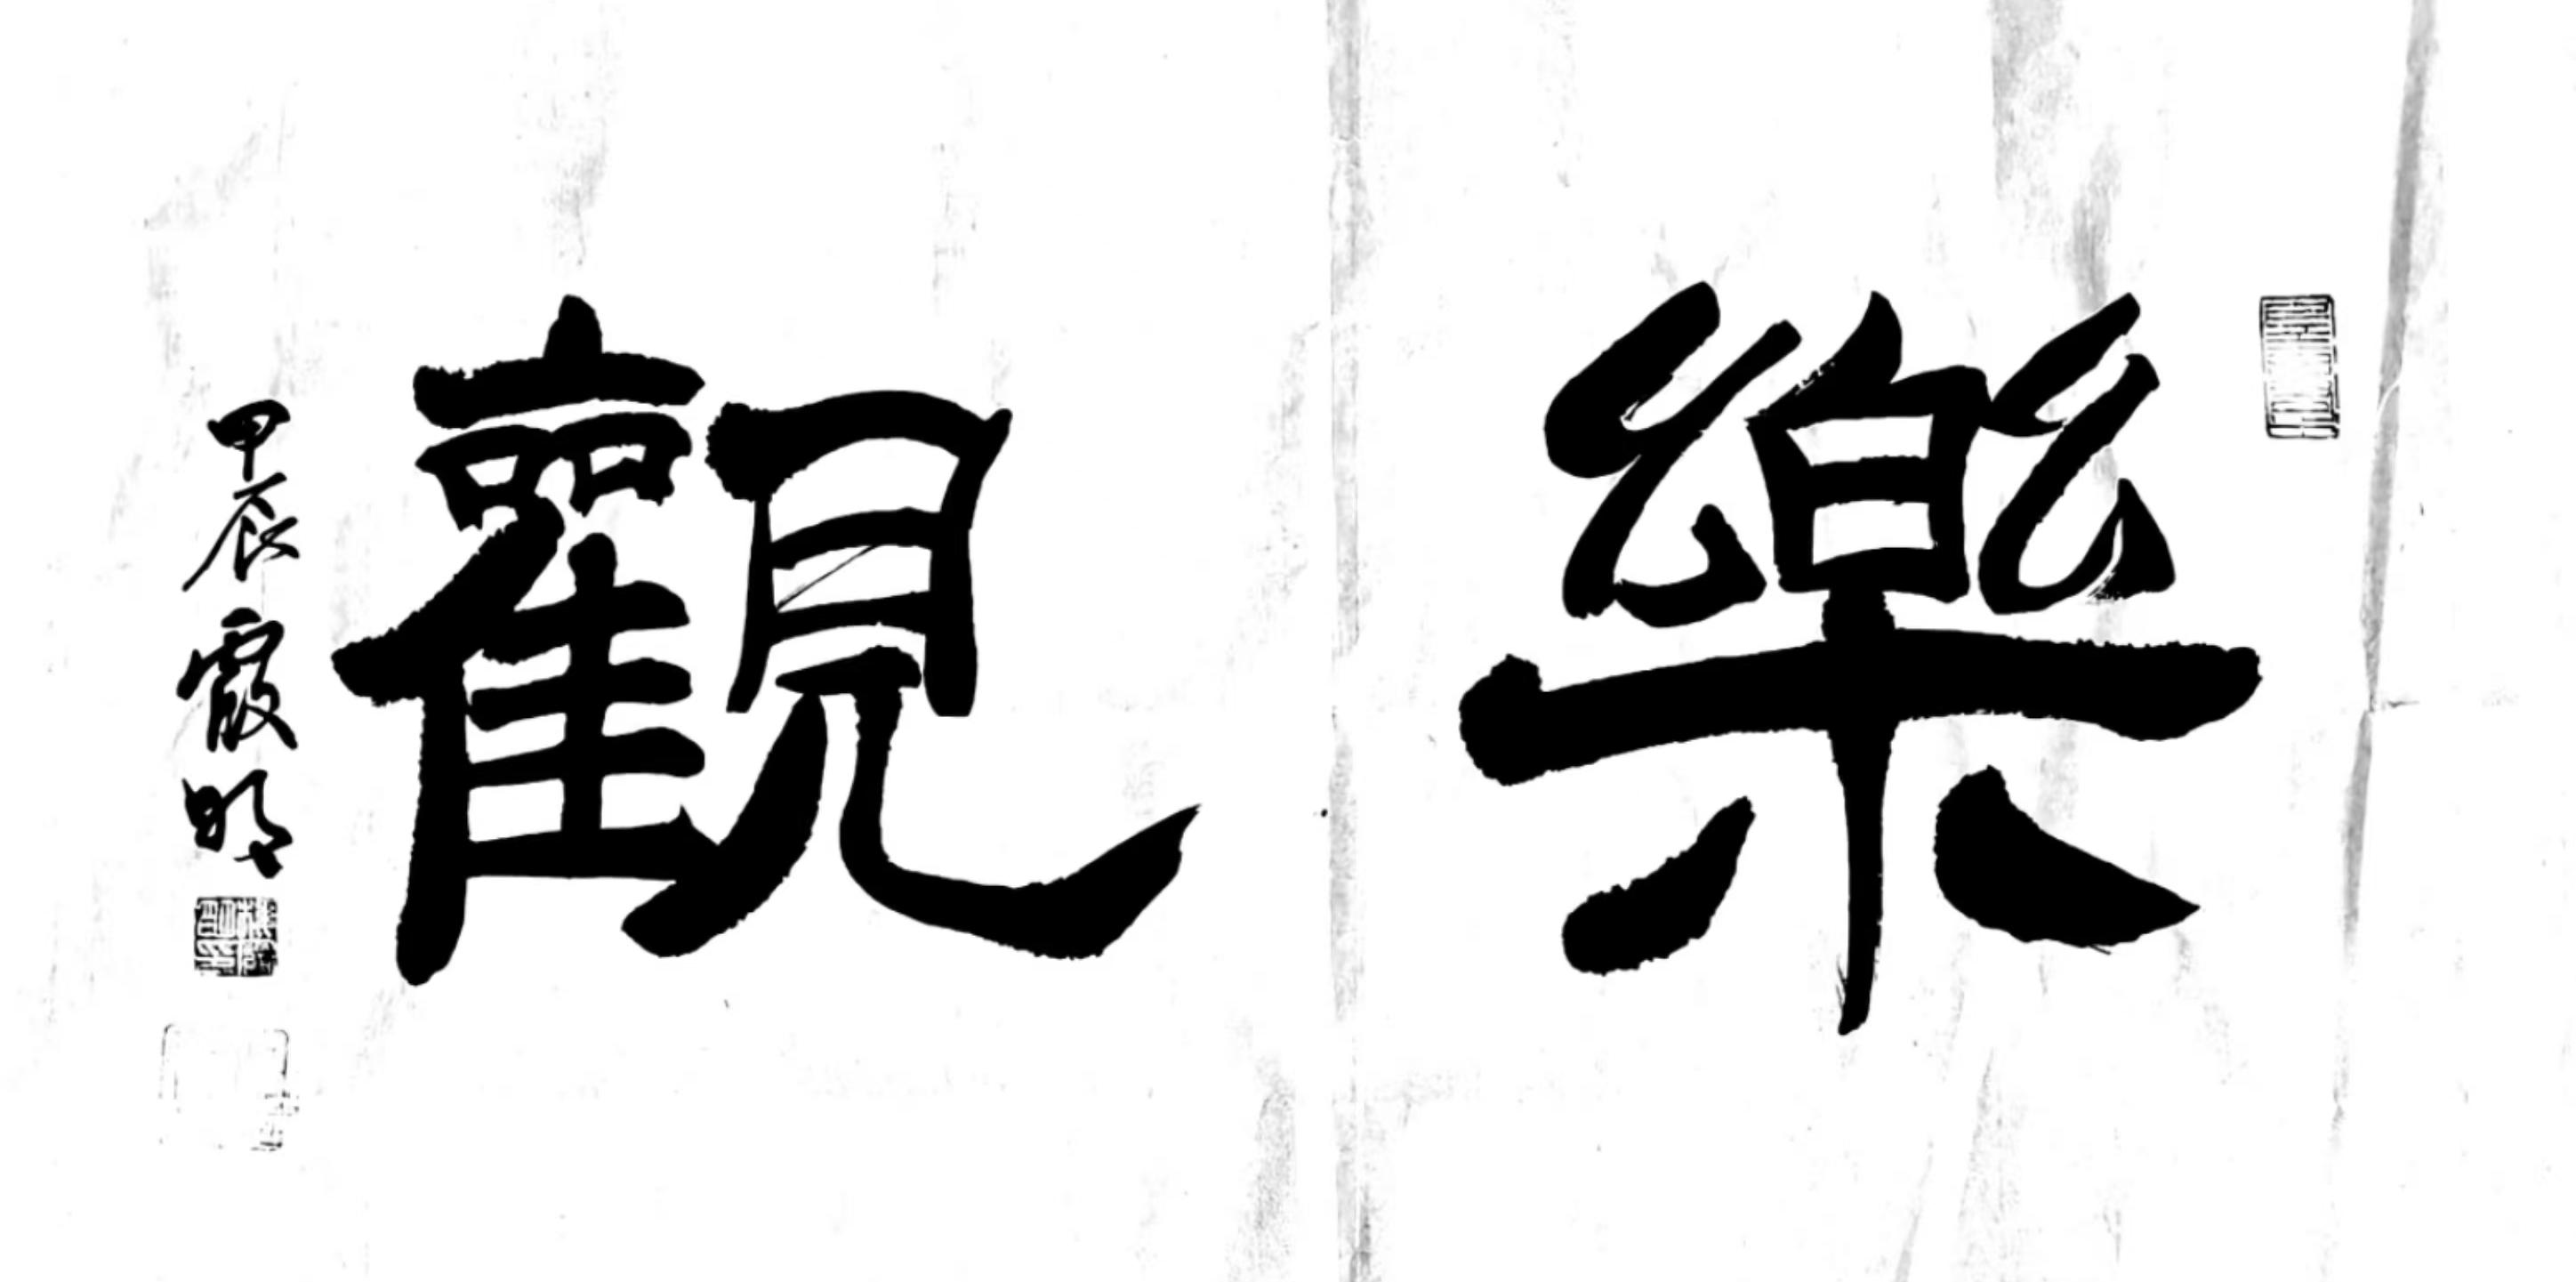 樂觀
甲辰霞明